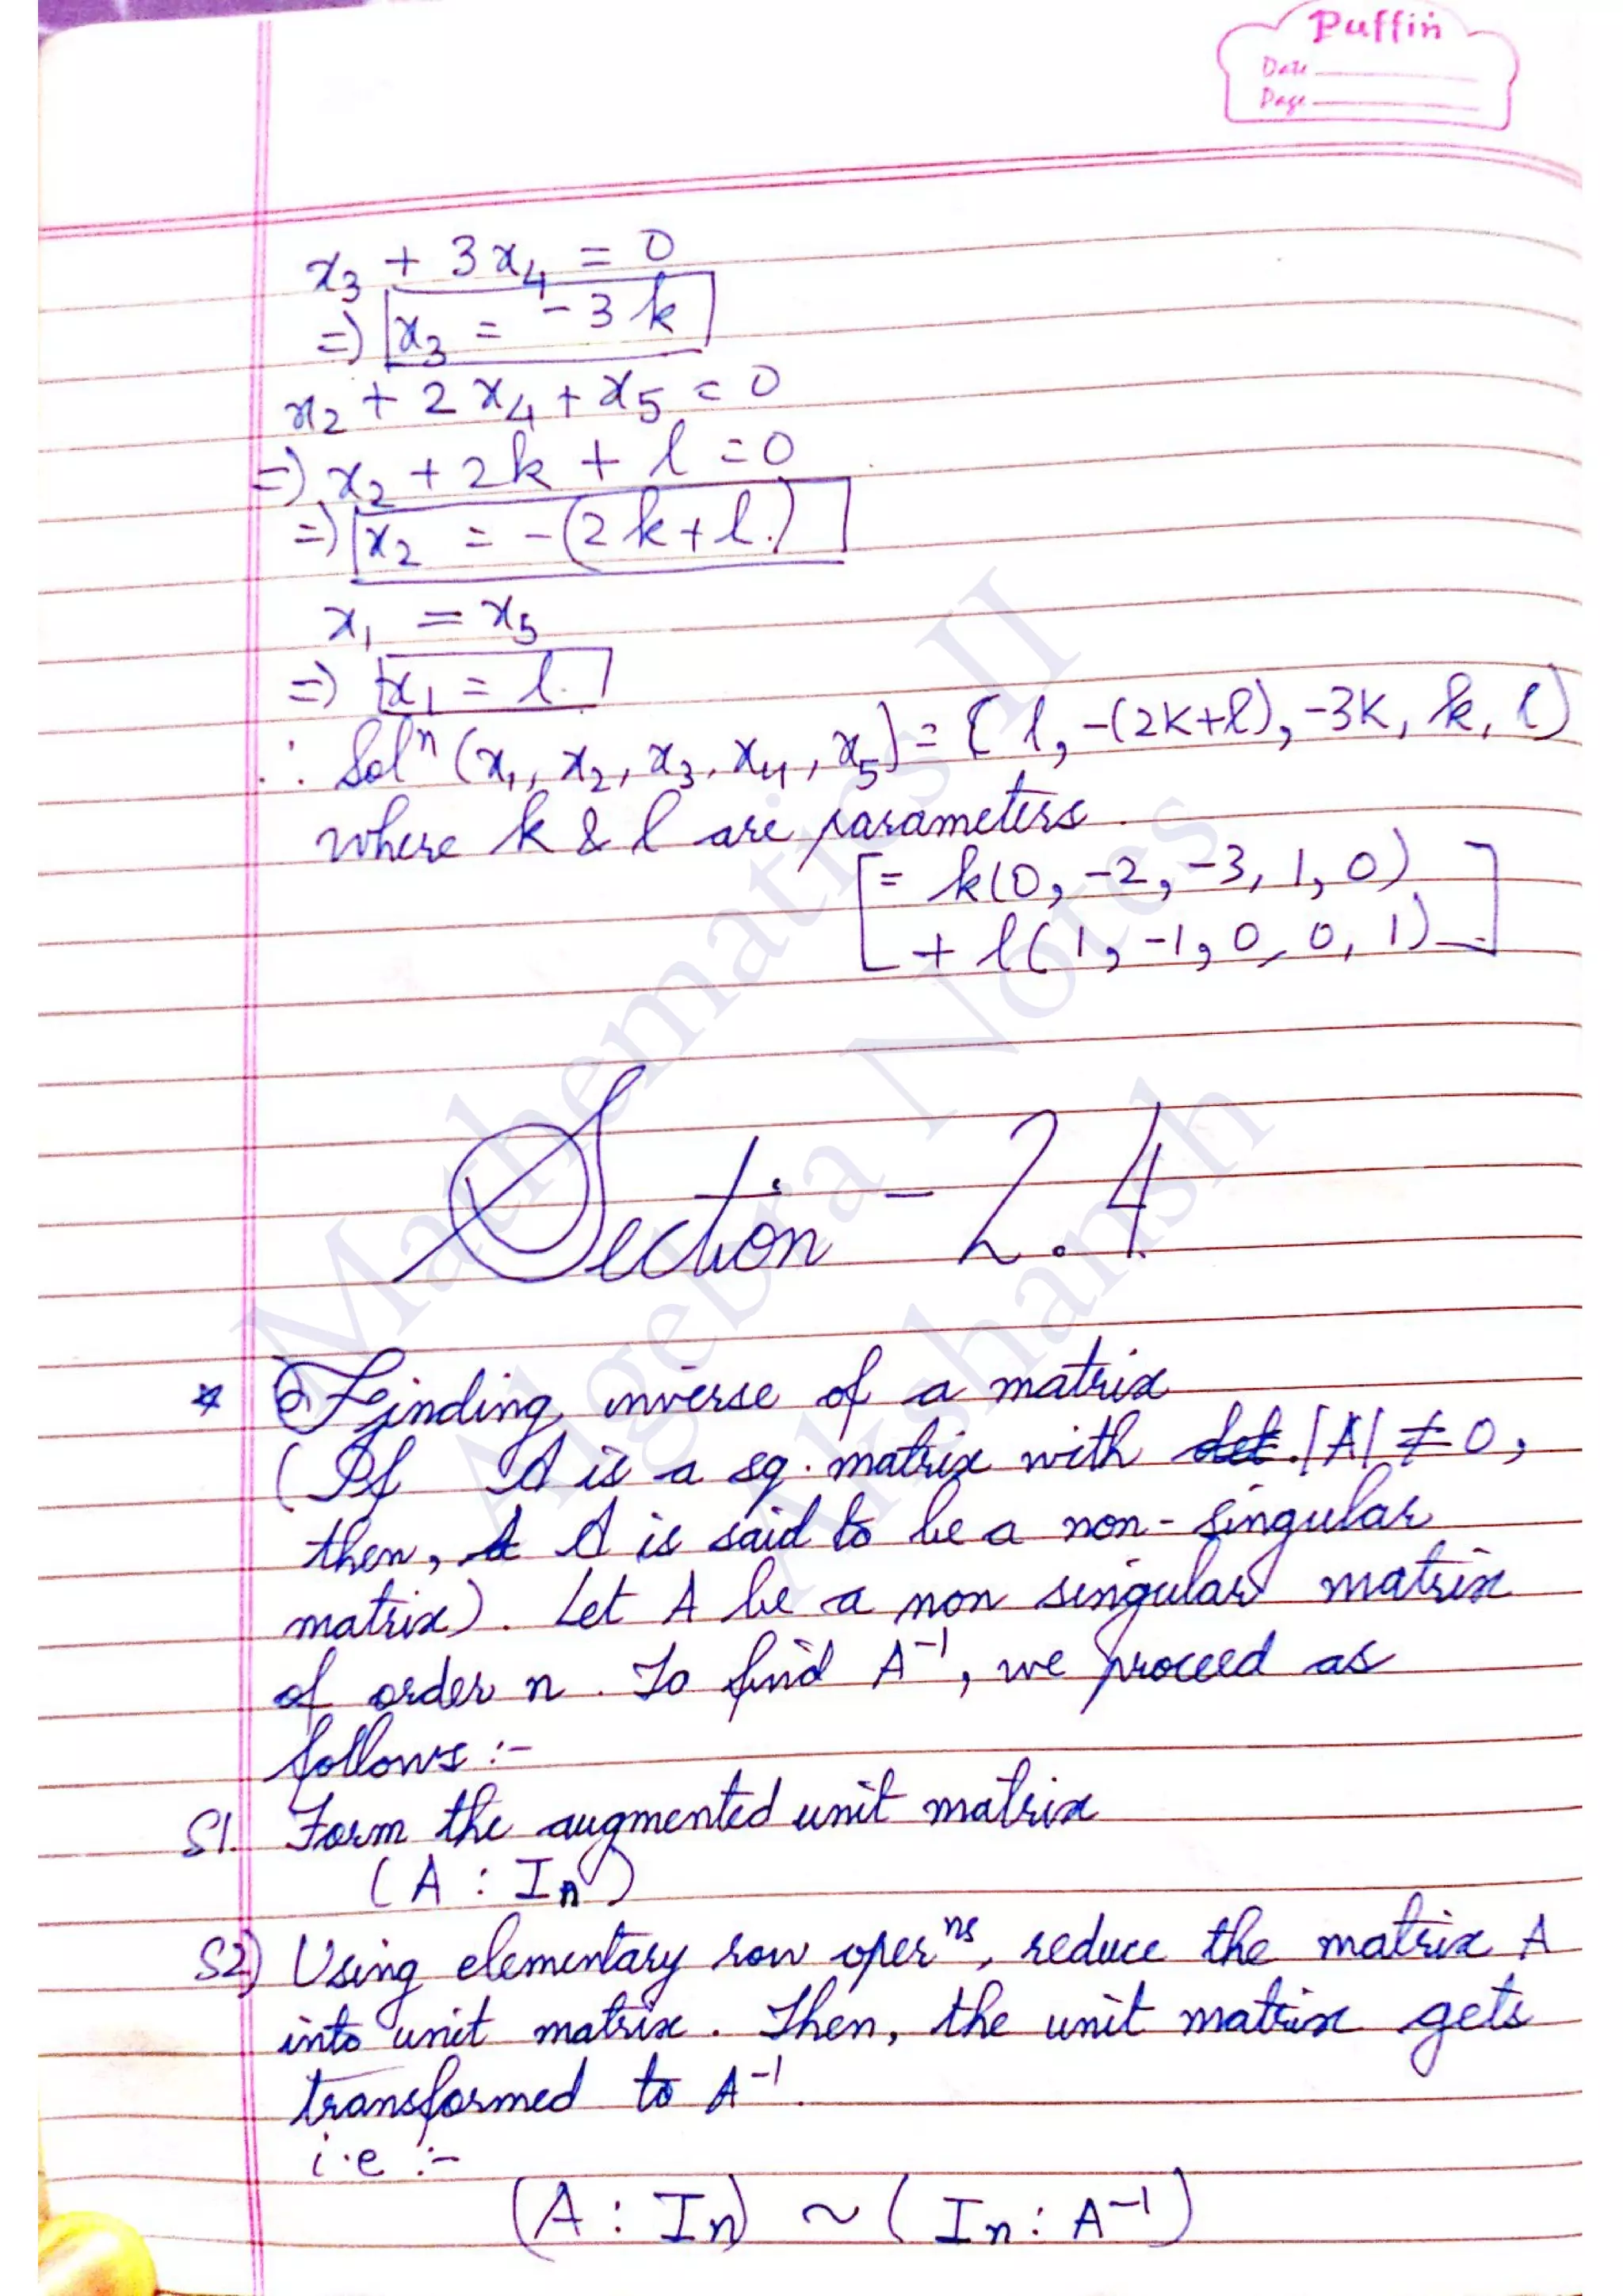 Puffin
Date
Page
x₃ + 3x₄ = 0
=) x₃ = -3k
x₂ + 2x₄ + x₅ = 0
=) x₂ + 2k + l = 0
=) x₂ = -(2k+l)
x₁ = x₅
=) x₁ = l.
∴ Solⁿ (x₁, x₂, x₃, x₄, x₅) = (l, -(2k+l), -3k, k, l)
where k & l are parameters.
[= k(0, -2, -3, 1, 0)
+ l(1, -1, 0, 0, 1)]
Section - 2.4
* Finding inverse of a matrix
(If A is a sq. matrix with det. |A| ≠ 0,
then, A is said to be a non-singular
matrix). Let A be a non singular matrix
of order n. To find A⁻¹, we proceed as
follows :-
S1. Form the augmented unit matrix
(A : Iₙ)
S2) Using elementary row operⁿˢ, reduce the matrix A
into unit matrix. Then, the unit matrix gets
transformed to A⁻¹.
i.e :-
(A : Iₙ) ~ (Iₙ : A⁻¹)
Mathematics II
Algebra Notes
Akshansh